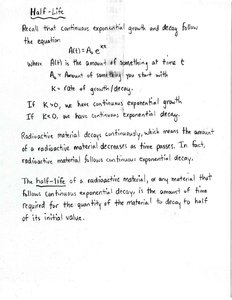 Half-Life
Recall that continuous exponential growth and decay follow
the equation
A(t) = A₀ e^kt
Where A(t) is the amount of something at time t
A₀ = Amount of something you start with
K = rate of growth/decay.
If K>0, we have continuous exponential growth
If K<0, we have continuous exponential decay.
Radioactive material decays continuously, which means the amount
of a radioactive material decreases as time passes. In fact,
radioactive material follows continuous exponential decay.
The half-life of a radioactive material, or any material that
follows continuous exponential decay, is the amount of time
required for the quantity of the material to decay to half
of its initial value.